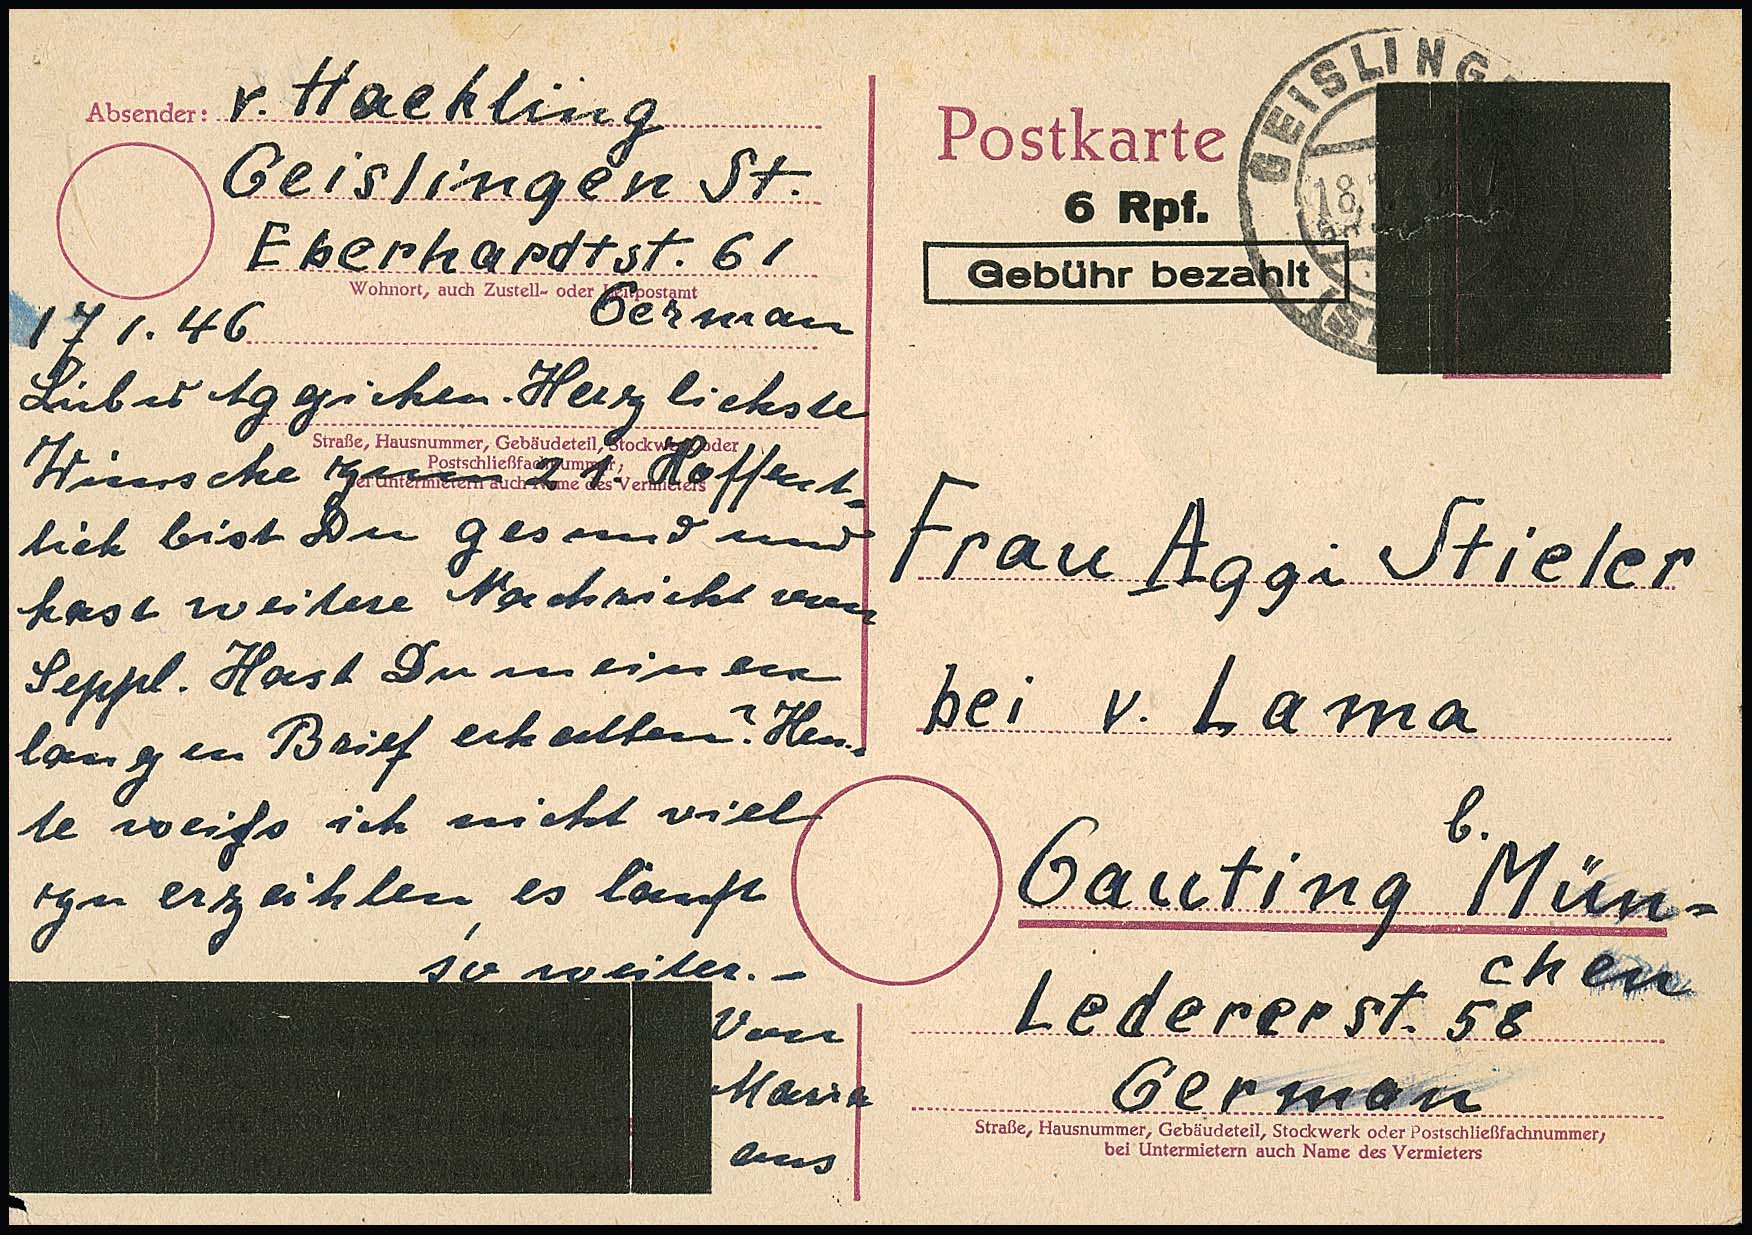 Absender: v. Hackling
Geislingen St.
Eberhardtst. 61
Wohnort, auch Zustell- oder Leitpostamt
German
17 1. 46
Liebes Aggichen. Herzlichste
Straße, Hausnummer, Gebäudeteil, Stockwerk oder
Postschließfachnummer;
bei Untermietern auch Name des Vermieters
Wünsche zum 21. Hoffent-
lich bist Du gesund und
hast weitere Nachricht vom
Seppl. Hast Du meinen
langen Brief erhalten? Heu-
te weiß ich nicht viel
zu erzählen, es läuft
so weiter. –
Von
Maria
aus
Postkarte
6 Rpf.
Gebühr bezahlt
GEISLING
18
Frau Aggi Stieler
bei v. Lama
Gauting b. Mün-
chen
Ledererst. 58
German
Straße, Hausnummer, Gebäudeteil, Stockwerk oder Postschließfachnummer;
bei Untermietern auch Name des Vermieters